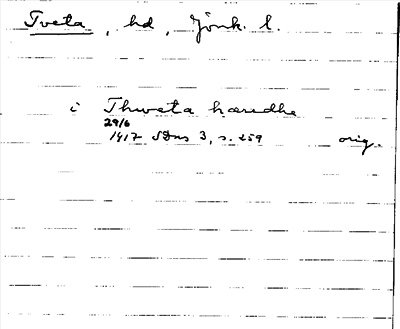 Tveta, hd, Jönk. l.
i Thweta hæredhe
29/6
1417 SDns 3, s. 259 orig.